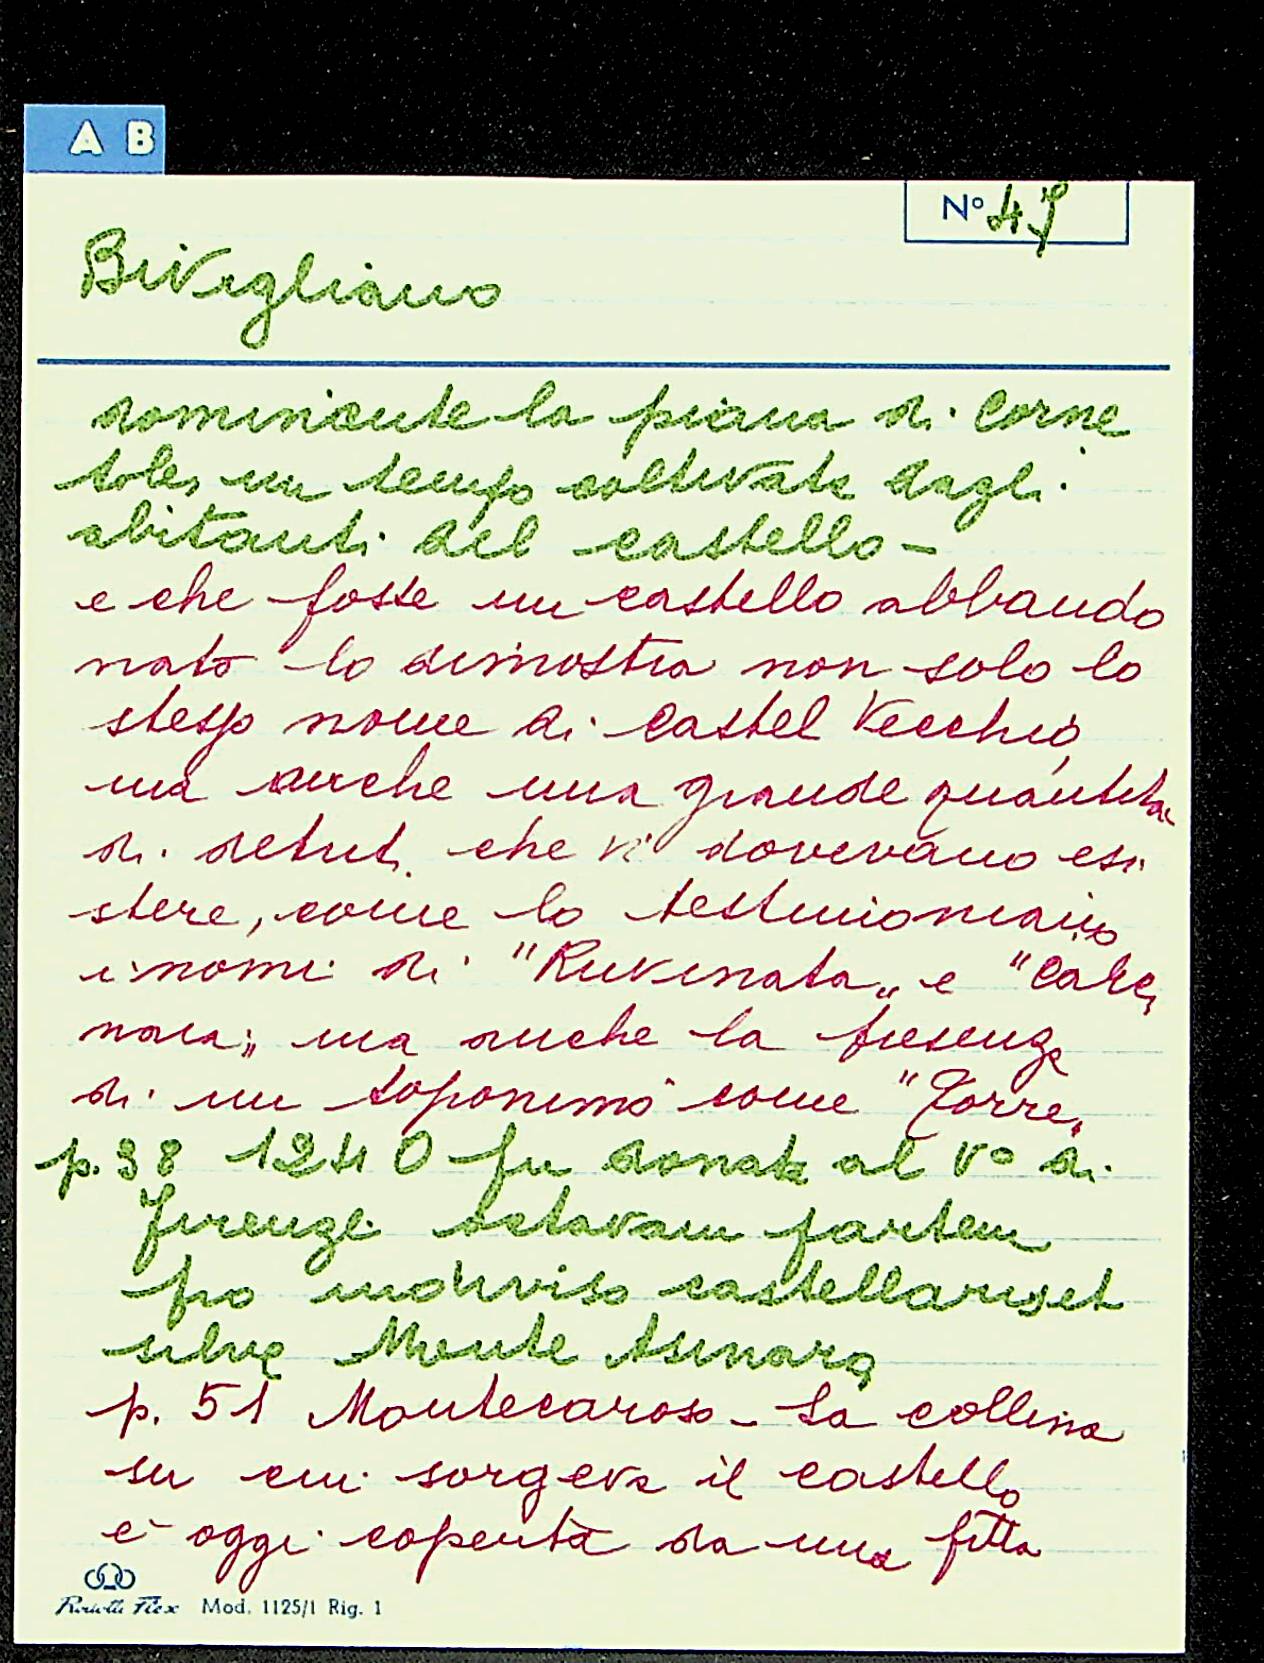 A B
N° 47
Bivigliano
dominante la piana di Corne
tole, un tempo coltivata dagli
abitanti del castello -
e che fosse un castello abbando
nato lo dimostra non solo lo
stesso nome di Castel Vecchio,
ma anche una grande quantità
di detriti che vi dovevano esi
stere, come lo testimoniano
i nomi di "Ruvinata„ e "Calci
naia„ ma anche la presenza
di un toponimo come "Torre„
p. 38 1240 fu donata al V° di
Firenze octavam partem
pro indiviso castellaris et
silve Monte Asinaro
p. 51 Montecaroso - La collina
su cui sorgeva il castello
è oggi coperta da una fitta
Flex Mod. 1125/1 Rig. 1